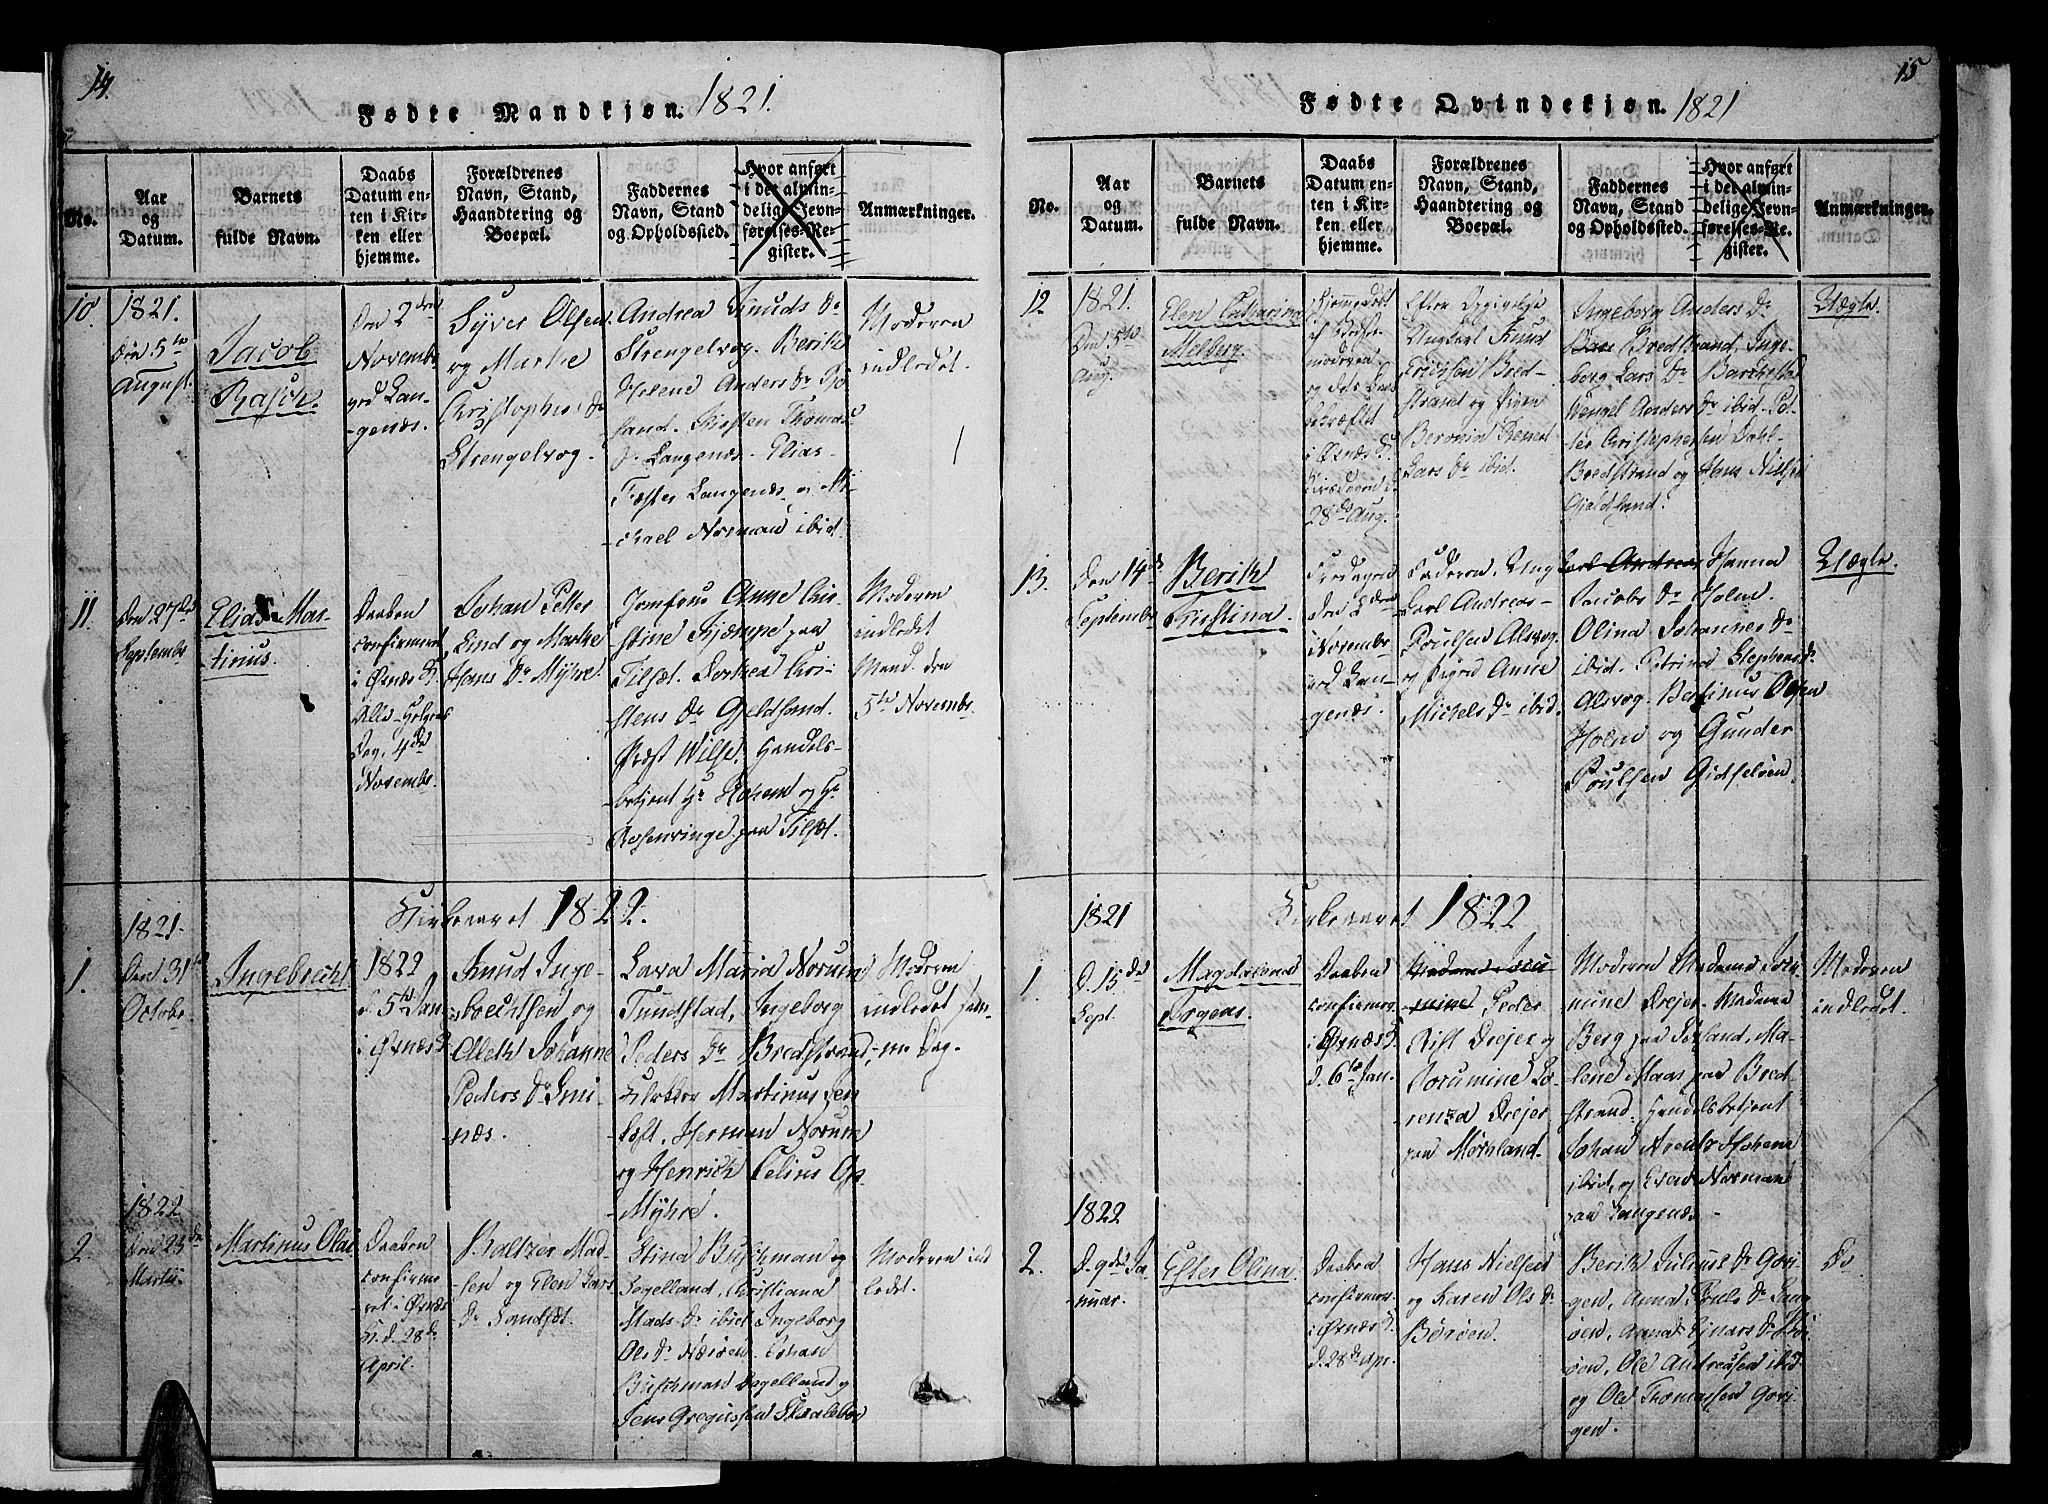 14.
Fødte Mandkjøn. 1821.
No.
Aar og Datum.
Barnets fulde Navn.
Daabs Datum enten i Kirken eller hjemme.
Forældrenes Navn, Stand, Haandtering og Boepæl.
Faddernes Navn, Stand og Opholdssted.
Hvor anført i det almindelige Jevnførelses-Register.
Anmærkninger.
10.
1821.
Den 5te
August.
Jacob
Rasch.
Den 2den
Novembr
ved Lan-
genæs.
Syver Olsen
og Marthe
Christophers Dr
Strengelvog.
Andrea Knuds Dr
Strengelvog. Berith
Helene Anders Dr
sand. Kirsten Thomas
Dr Langenæs. Elias
Langenæs og Mi-
chael Norman ibid.
Moderen
indledet.
11.
Den 27de
Septembr
Elias Mar-
tinus.
Daaben
confirmeret
i Øxnæs K.
Alle-Helgens
Dag, 4de
Novembr.
Johan Petter
Lind og Marthe
Hans Dr Myhre.
Jomfrue Anne Chri-
stine Kjæmpe paa
Tilset. Dorthea Chri-
stens Dr Gjeldsand.
Præst Wilse. Handels-
betjent Hr
og Hr
Rosenvinge paa Tilset.
Moderen
indledet
Mand. den
5te Novembr.
Kirkeaaret 1822.
1.
1821.
Den 31te
Octobr
Ingebrecht
1822
d. 5te Jan
i Øxnæs K.
Knud Inge-
brechtsen og
Aleth Johanne
Peders Dr Smi-
næs.
Lava Maria Norum
Tundstad, Ingeborg
Peders Dr Bredstrand,
Klokker Martinus Jen
Toft, Herman Norum
og Henrich Celius Op
Myhre.
Moderen
indledet sam-
me Dag.
2.
1822
Den 23de
Martii
Martinus Olai
Daaben
confirme-
ret i Øxnæs
K. d. 28de
April.
Baltzer Mad-
sen og Elen Lars
Dr Sandset.
Stina Buschman og
Dogelland, Christiana
Mads Dr ibid, Ingeborg
Ols Dr Næröen. Johan
Buschman Dogelland og
Jens Gregussen Skralebo
Moderen ind-
ledet.
15
Fødte Qvindekjøn. 1821
No.
Aar og Datum.
Barnets fulde Navn.
Daabs Datum enten i Kirken eller hjemme.
Forældrenes Navn, Stand, Haandtering og Boepæl.
Faddernes Navn, Stand og Opholdssted.
Hvor anført i det almindelige Jevnførelses-Register.
Anmærkninger.
12.
1821.
Den 5te
Aug.
Elen Catharina
Melberg.
Hjemmedøbt
af
moderen
og dets Daab
bekræftet
i Øxnæs K.
28de Aug.
Efter Opgivelse
Ungkarl Knud
Erichsen Bred-
strand og Pigen
Beronia
Lars Dr ibid.
Ingeborg Anders Dr
Bredstrand, Inge-
borg Lars Dr
Anders Dr ibid. Pe-
ter Christophersen Dahl-
Bredstrand og Hans Nielsen
Gjeldsand.
Uægte.
13.
Den 14de
Septembr
Berith
Cristina.
Fredagen
den 2den
Novembr
ved Lan-
genæs.
Faderen, Ung-
karl Andreas
Poulsen Alsvog
og Pigen Anne
Michels Dr ibid.
Hanna
Jacobs Dr Holm.
Olina Johannes Dr
ibid. Petrina Stephens Dr
Alsvog. Bertinus Olsen
Holm og Gunder
Poulsen Gidselöen.
Uægte.
Kirkeaaret 1822
1.
1821
d. 15de
Sept.
Magdalena
Daaben
confirmer
i Øxnæs K.
d. 6te Jan.
Peder
Rist Drejer og
Jorumine Lo-
renza Drejer
paa Mørnland.
Moderen Madame Joru-
mine Drejer, Madame
Berg paa Skogland, Ma-
lene Maas paa Bred-
strand, Handelsbetjent
Johan
ibid, og Evend Norman
paa Langenæs.
Moderen
indledet.
2.
1822
d. 9de Ja-
nuar.
Ester Olina.
Daaben
confirmer
i Øxnæs K.
d. 28de Apr.
Hans Nielsen
og Karen Ols Dr
Børöen.
Berith Julius Dr Gavi-
gen, Anna Pouls Dr Lang
öen, Anna Ejnars Dr
öen, Ole Andreasen ibid
og Ole Thomassen Gavi-
gen.
Do